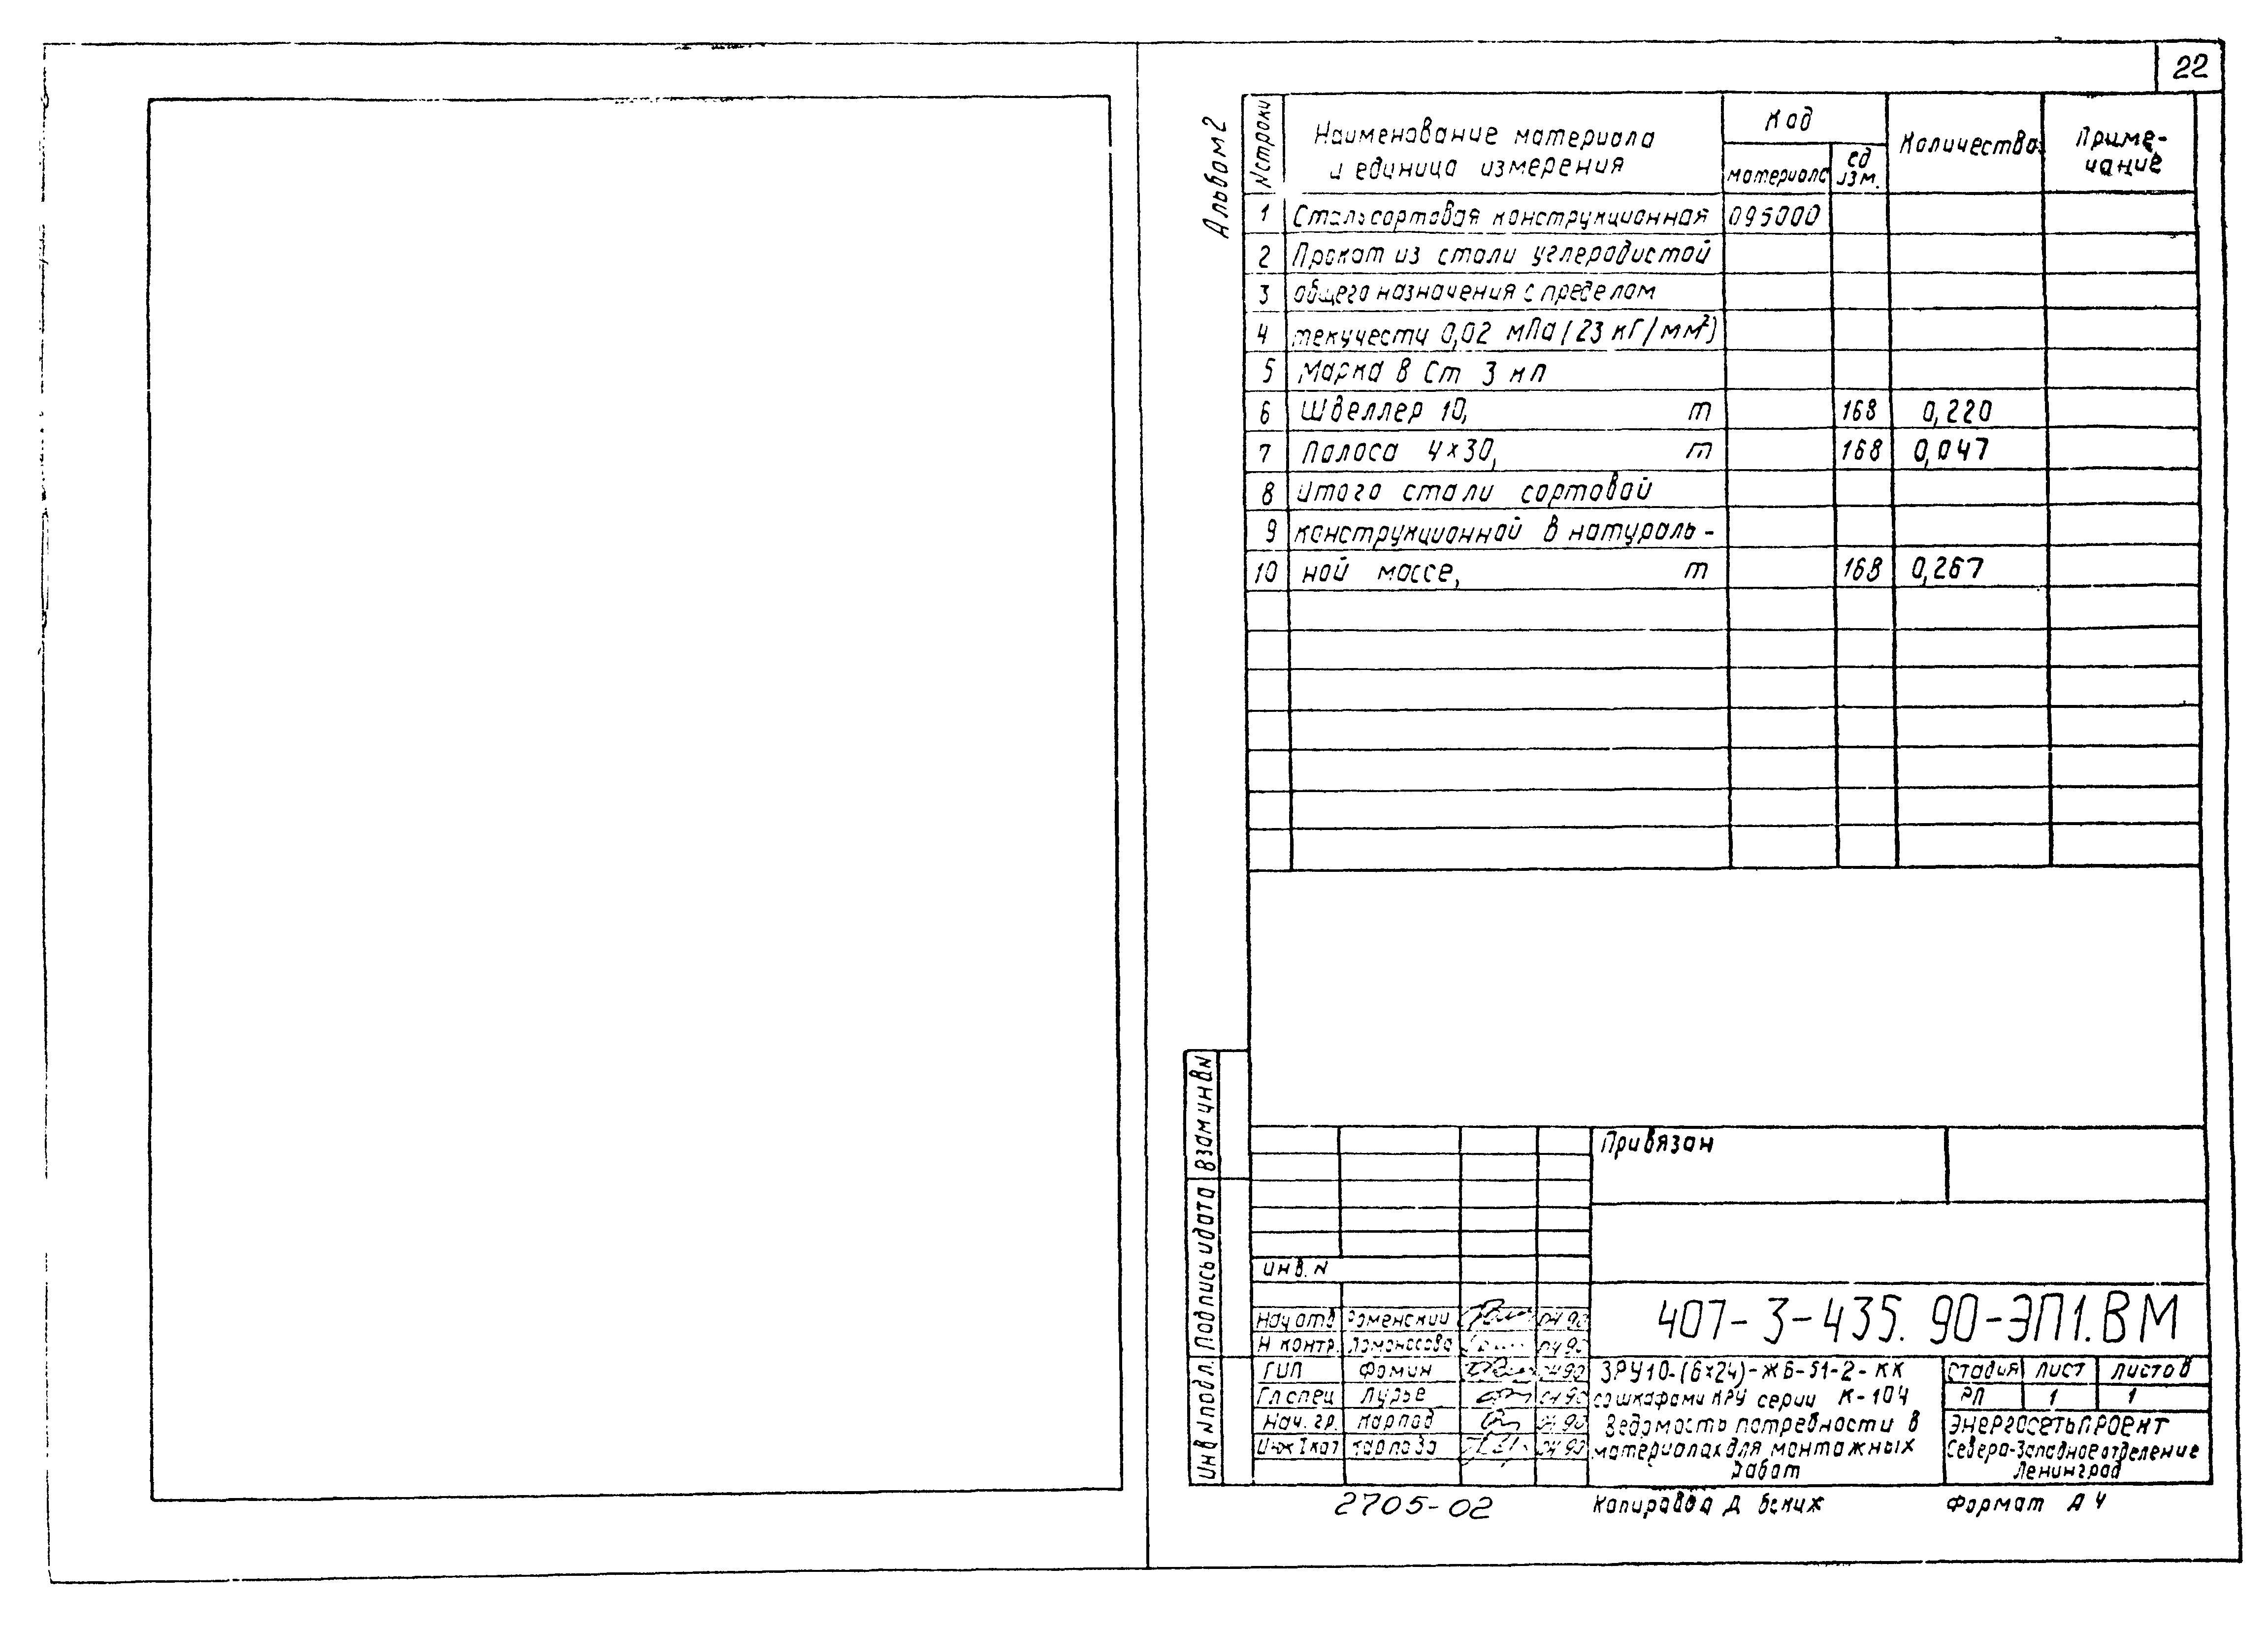 22
Альбом 2
N строки
Наименование материала
и единица измерения
Код
материала
ед
изм.
Количество
Приме-
чание
1 Сталь сортовая конструкционная 095000
2 Прокат из стали углеродистой
3 общего назначения с пределом
4 текучести 0,02 мПа (23 кГ/мм²)
5 Марка В Ст 3 кп
6 Швеллер 10, т 168 0,220
7 Полоса 4×30, т 168 0,047
8 Итого стали сортовой
9 конструкционной в натураль-
10 ной массе, т 168 0,267
Взам инв N
Подпись и дата
Инв N подл.
Привязан
инв. N
407-3-435.90-ЭП1.ВМ
Нач отд Роменский 04 90
Н контр. Ломоносова 04 90
ГИП Фомин 04 90
Гл спец Лурье 04 90
Нач. гр. Карпов 04 90
Инж I кат Карпова 04 90
ЗРУ10-(6×24)-ЖБ-51-2-КК
со шкафами КРУ серии К-104
Ведомость потребности в
материалах для монтажных
работ
Стадия Лист Листов
РП 1 1
Энергосетьпроект
Северо-Западное отделение
Ленинград
2705-02
Копировал
Формат А4